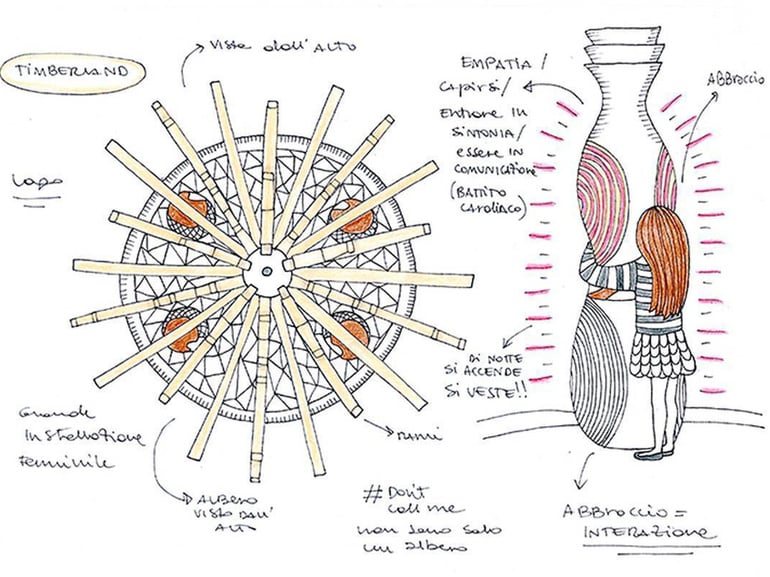 TIMBERLAND
VISTA dall'ALTO
EMPATIA /
CAPIRSI /
ENTRARE IN
SINTONIA /
ESSERE IN
COMUNICAZIONE
(BATTITO
CARDIACO)
ABBRACCIO
DI NOTTE
SI ACCENDE
SI VESTE!!
GRANDE
INSTALLAZIONE
FEMMINILE
RAMI
ALBERO
VISTO DALL'
ALTO
# DON'T
CALL ME
NON SONO SOLO
UN ALBERO
ABBRACCIO =
INTERAZIONE